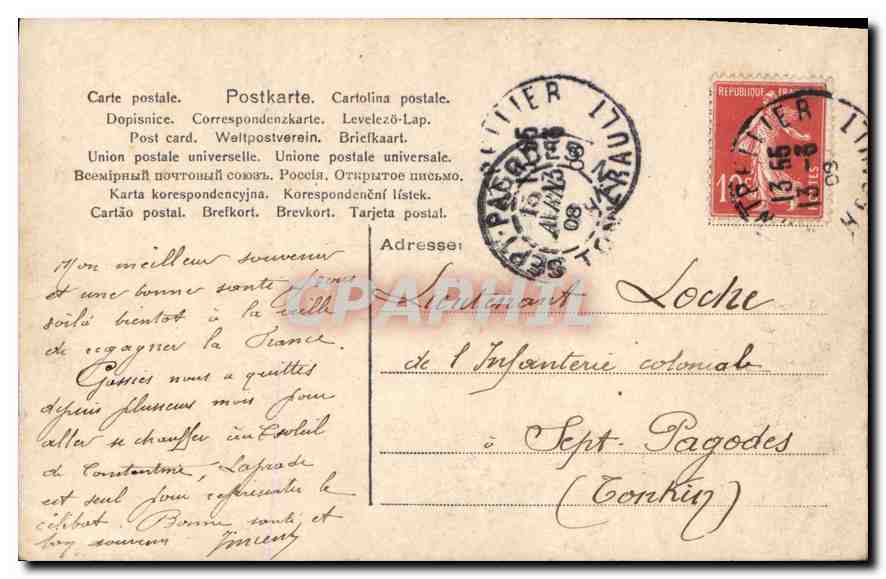 Carte postale. Postkarte. Cartolina postale.
Dopisnice. Correspondenzkarte. Levelező-Lap.
Post card. Weltpostverein. Briefkaart.
Union postale universelle. Unione postale universale.
Всемірный почтовый союзъ. Россія. Открытое письмо.
Karta korespondencyjna. Korespondenční lístek.
Cartão postal. Brefkort. Brevkort. Tarjeta postal.
REPUBLIQUE
10
13
08
SEPT-PAGODES
TONKIN
15
AVRIL
08
Adresse:
Mon meilleur souvenir
et une bonne santé
voilà bientôt à la veille
de regagner la France.
nous a quittés
depuis plusieurs mois pour
aller se chauffer au soleil
de Constantine, Laprade
est seul pour représenter le
célibat. Bonne santé et
bon souvenir
Lieutenant Loche
de l'Infanterie coloniale
à Sept-Pagodes
(Tonkin)
CPAPHIL